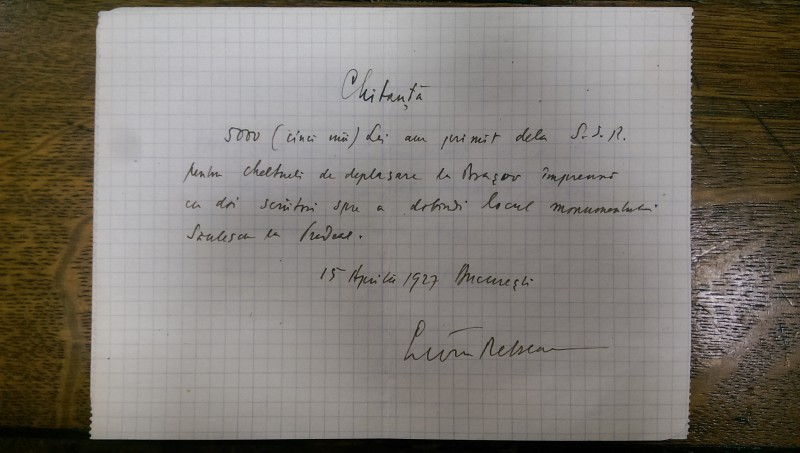 Chitanță
5000 (cinci mii) Lei am primit dela S.S.R.
pentru cheltueli de deplasare la Brașov împreună
cu doi scriitori spre a dobîndi locul monumentului
Săulescu la Predeal.
15 Aprilie 1927 București
Liviu Rebreanu